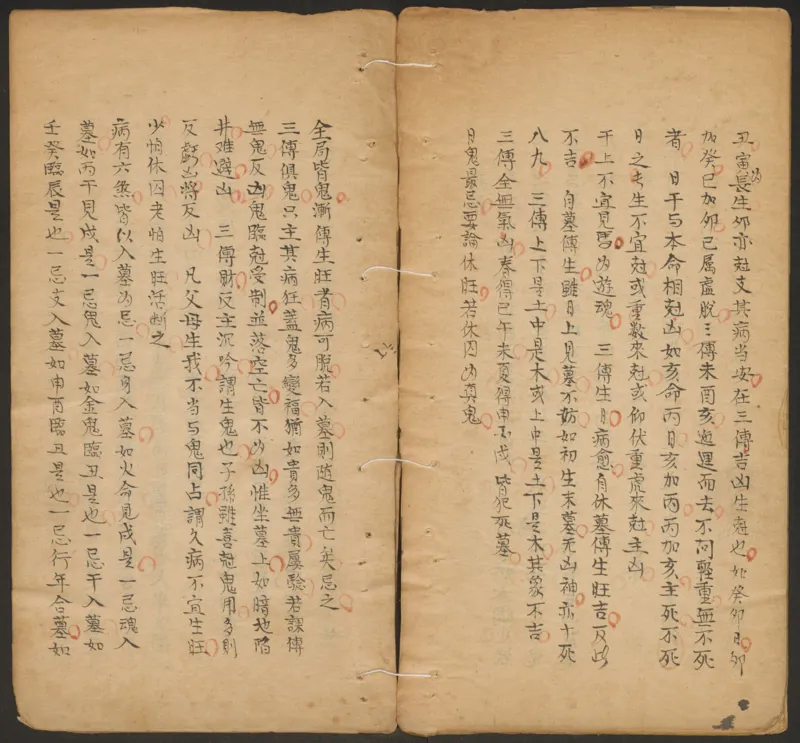 丑寅長生夘亦尅支其病当安在三傳吉凶生尅也如癸夘日夘
加癸巳加夘已属虚脱三傳未酉亥迤逦而去不问輕重無不死
者 日干与本命相尅凶如亥命丙日亥加丙丙加亥主死不死
日之长生不宜尅或重数來尅或仰伏重虎來尅主凶
干上不宜見馬为遊魂 三傳生日病愈自休墓傳生旺吉反此
不吉 自墓傳生雖日上見墓不妨如初生末墓无凶神亦十死
八九 三傳上下是土中是木或上中是土下是木其象不吉
三傳全無氣凶春得巳午未夏得申酉戌皆犯死墓
日鬼最忌要論休旺若休囚为真鬼
全局皆鬼漸傳生旺者病可脫若入墓則随鬼而亡矣忌之
三傳俱鬼只主其病狂蓋鬼多變福猶如貴多無貴屡驗若課傳
無鬼反凶鬼臨尅受制並落空亡皆不为凶惟坐墓上如暗地陷
井难避凶 三傳財反主沉吟謂生鬼也子孫雖喜尅鬼用多則
反虧凶將反凶 凡父母生我不当与鬼同占謂久病不宜生旺
少怕休囚老怕生旺活断之
病有六煞皆以入墓为忌一忌身入墓如火命見戌是一忌魂入
墓如丙干見戌是一忌鬼入墓如金鬼臨丑是也一忌干入墓如
壬癸臨辰是也一忌支入墓如申酉臨丑是也一忌行年合墓如